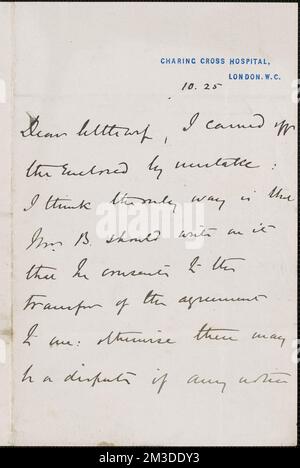 CHARING CROSS HOSPITAL,
LONDON. W.C.
10. 25
Dear, I carried off
the enclosed by mistake:
I think the only way is that
Mrs B. should write on it
that he consents to the
transfer of the agreement
to me: otherwise there may
be a dispute if any notice
alamy
Image ID: 2M3DDY3
www.alamy.com